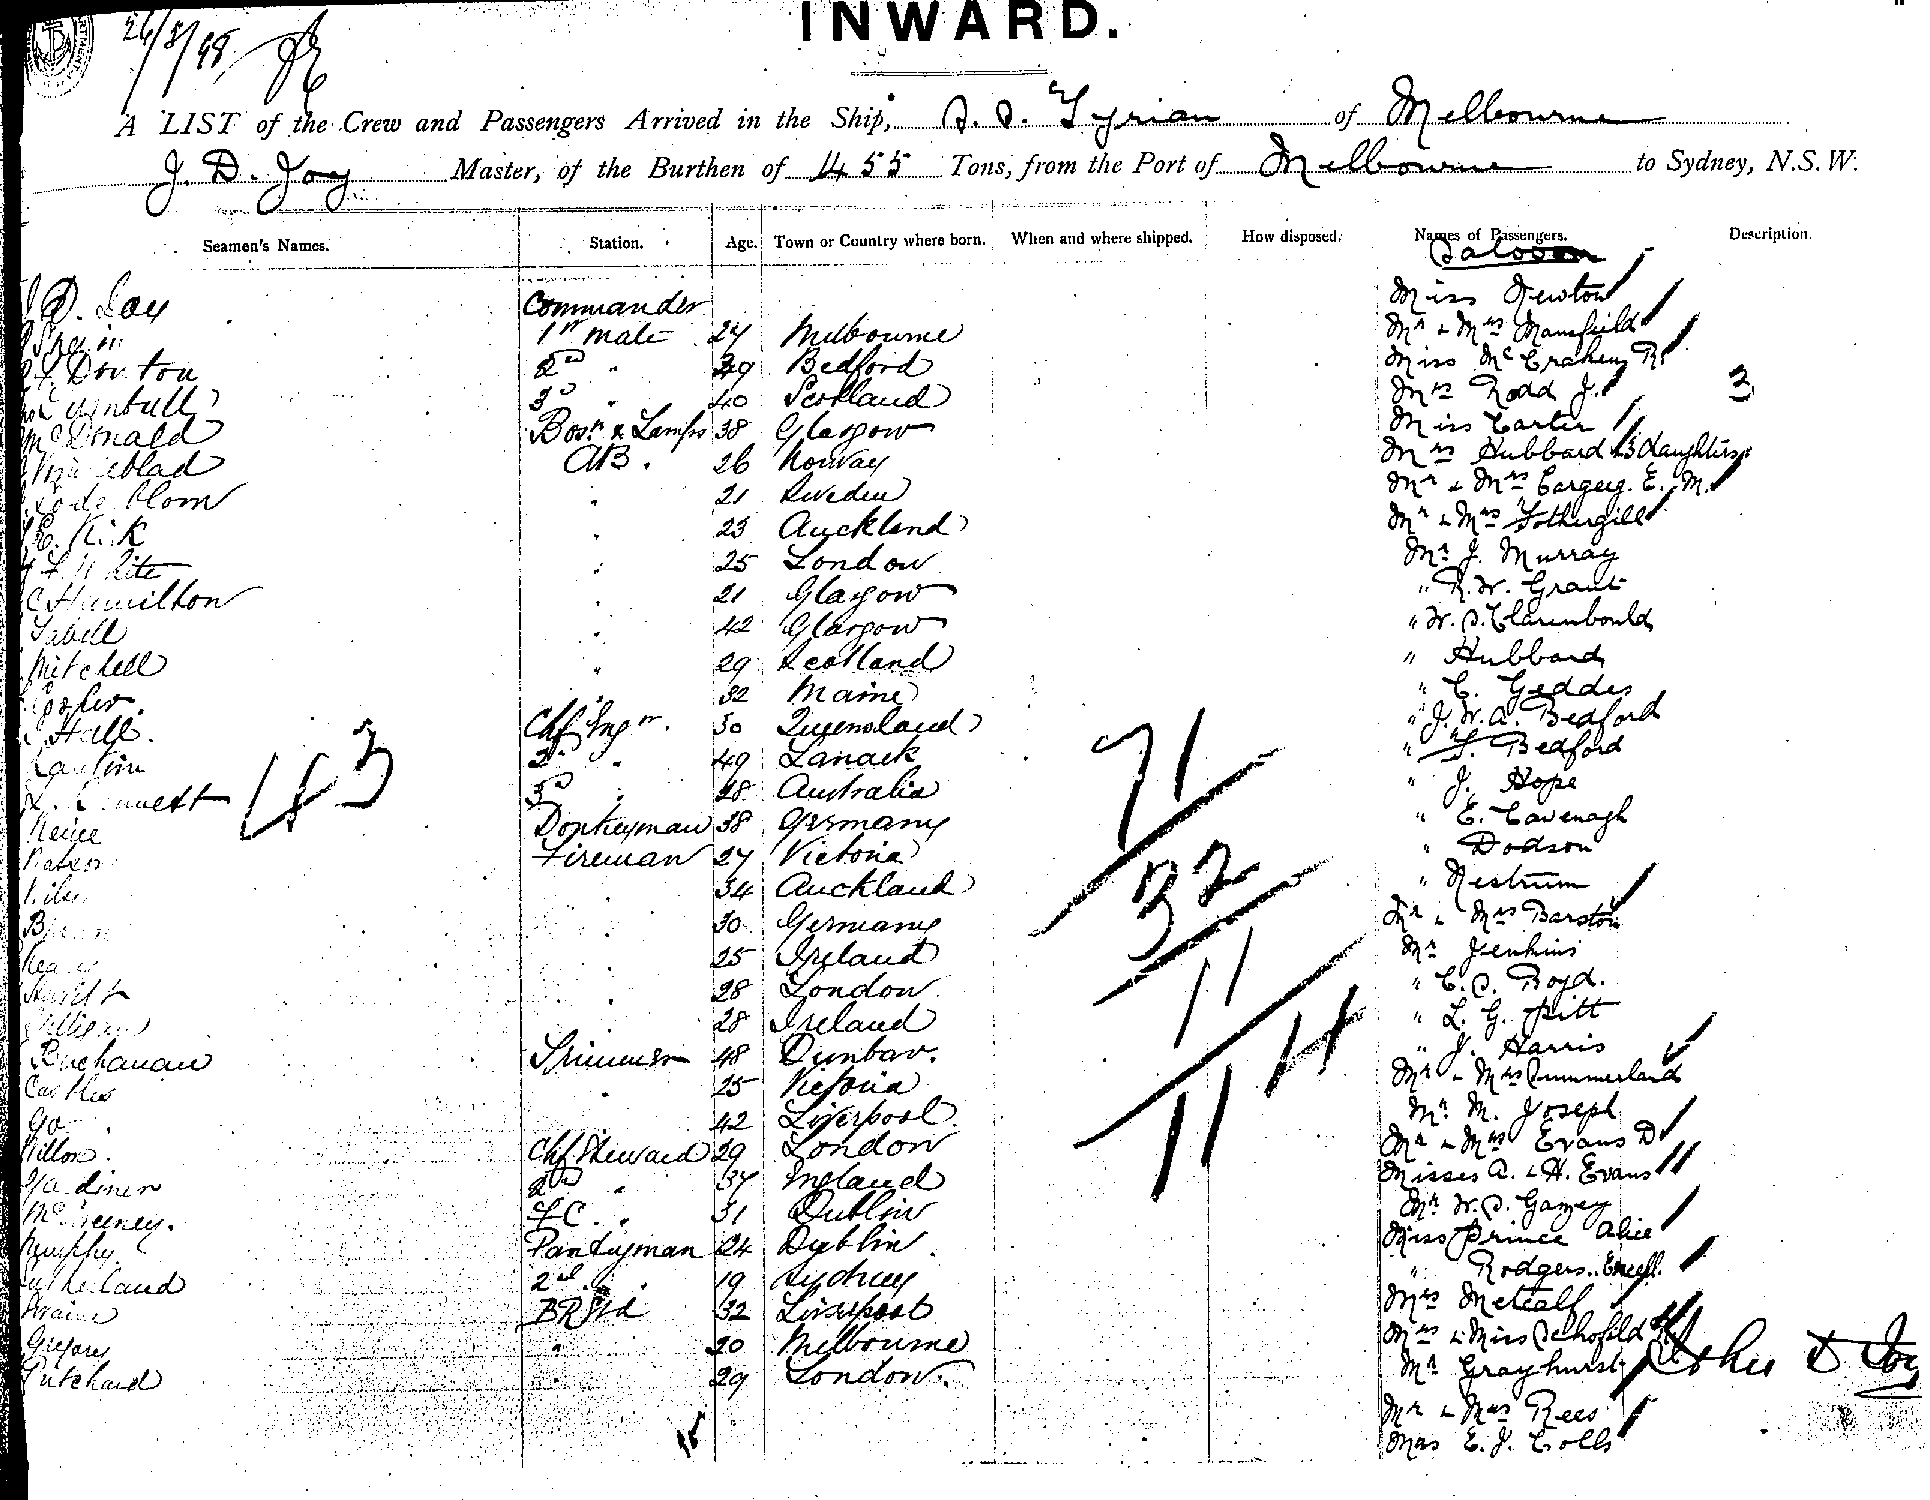 26/8/98
INWARD.
A LIST of the Crew and Passengers Arrived in the Ship, S. S. Tyrian of Melbourne
J. D. Joy Master, of the Burthen of 455 Tons, from the Port of Melbourne to Sydney, N.S.W.
Seamen's Names. Station. Age. Town or Country where born. When and where shipped. How disposed. Names of Passengers. Description.
Saloon
D. Joy Commander Miss Newton
1st Mate 27 Melbourne Mr & Mrs Mansfield
Douton 2nd " 29 Bedford Miss McCraken R.
Turnbull 3d " 40 Scotland Mrs Rodd J. 3
McDonald Bosn & Lamps 38 Glasgow Miss Carter
AB. 26 Norway Mrs Hubbard & 3 daughters
21 Sweden Mr & Mrs E. M.
E. Kirk " 23 Auckland Mr & Mrs Fothergill
White " 25 London Mr J. Murray
C Hamilton " 21 Glasgow " R. W. Grant
Isbell " 42 Glasgow " W. S. Clarenbould
Mitchell " 29 Scotland " Hubbard
Cooper. " 32 Maine " C. Geddes
Hall. Chf Engr. 30 Queensland " J. W. A. Bedford
2d " 49 Lanack " T. Bedford
43
L. Bennett 3d " 28 Australia " J. Hope
71
Donkeyman 38 Germany " E. Cavenagh
Fireman 27 Victoria " Dodson
34 Auckland " Nestrum
32
30 Germany Mr & Mrs Barston
25 Ireland Mr Jenkins
28 London " C. S. Boyd.
11
28 Ireland " L. G. Pitt
" J. Harris
Buchanan Trimmer 48 Dunbar. Mr & Mrs Summerland
25 Victoria Mr M. Joseph
114
42 Liverpool Mr & Mrs Evans D
Chf Steward 29 London Misses A. & H. Evans
Gardiner 2d " 37 England Mr W. S. Garvey
McSweeney. F.C. " 31 Dublin Miss Prince Alice
Murphy Pantryman 24 Dublin " Rodgers
Sutherland 2nd " 19 Sydney Mrs Metcalf
BR Std 32 Liverpool Mrs & Miss Schofield
Gregory " 20 Melbourne Mr Grayhurst
John D Joy
Pritchard 29 London. Mr & Mrs Rees
Mrs E. J. Colls